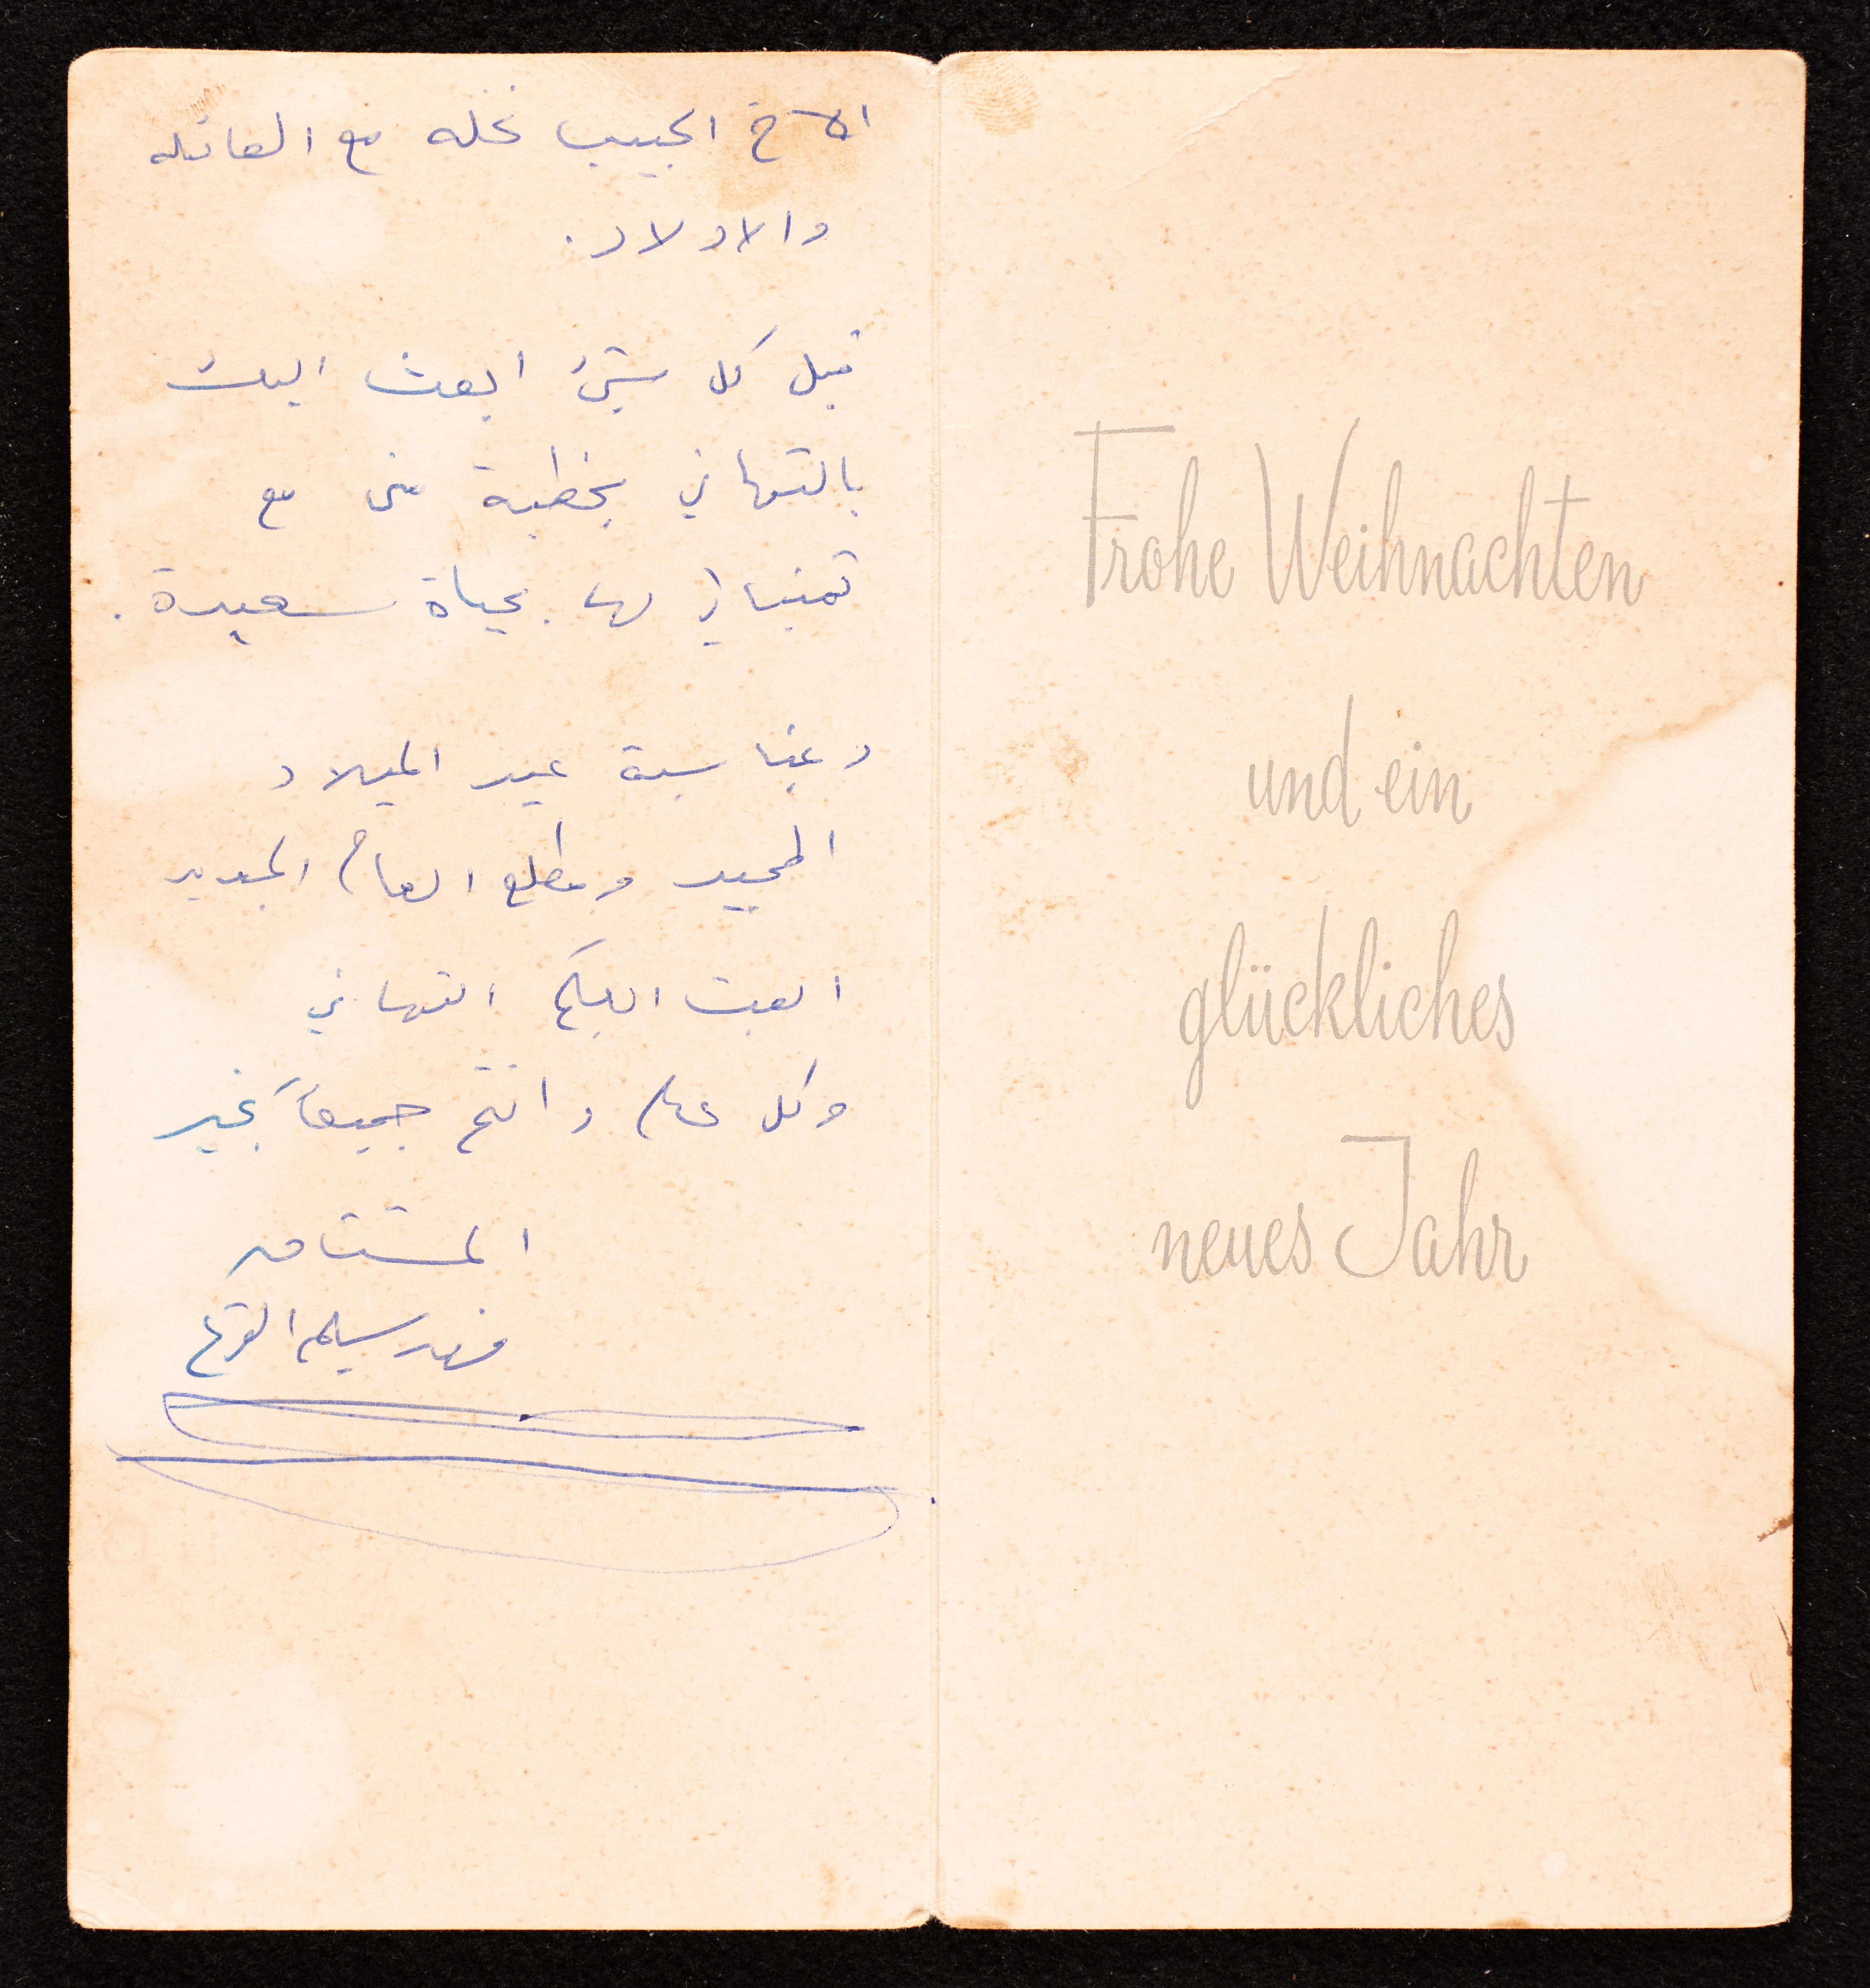 الاخ الحبيب نخله مع العائله
والاولاد.
قبل كل شيء ابعث اليك
بالتهاني بخطبة منى مع
تمنياتي لها بحياة سعيدة.
وبمناسبة عيد الميلاد
المجيد ومطلع العام الجديد
ابعث اليكم التهاني
وكل عام وانتم جميعاً بخير
المشتاق
فهد سليم
Frohe Weihnachten
und ein
glückliches
neues Jahr